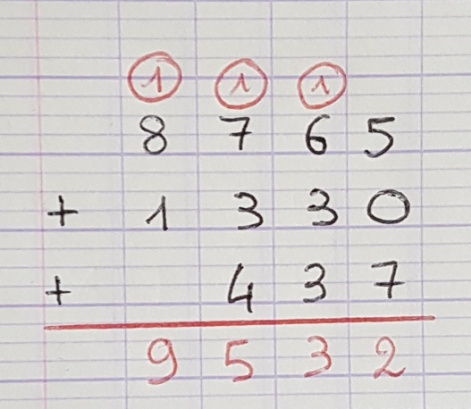 1 1 1
8 7 6 5
+ 1 3 3 0
+ 4 3 7
9 5 3 2